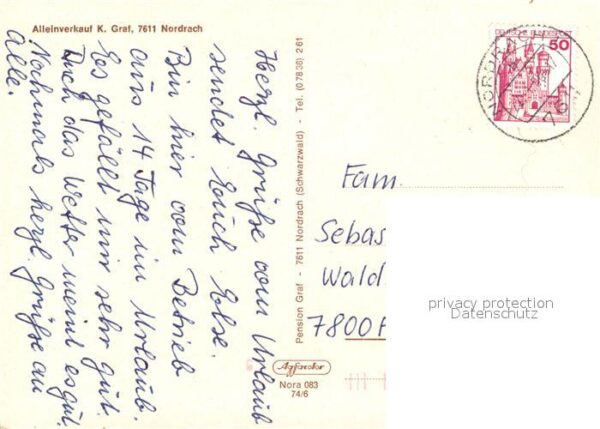 Alleinverkauf K. Graf, 7611 Nordrach
Herzl. Grüße vom Urlaub
sendet Euch Else.
Bin hier vom Betrieb
aus 14 Tage im Urlaub.
Es gefällt mir sehr gut.
Doch das Wetter meint es gut.
Nochmals herzl. Grüße an
Alle.
Pension Graf - 7611 Nordrach (Schwarzwald) - Tel. (07838) 261
Agfacolor
Nora 083
74/6
DEUTSCHE BUNDESPOST
50
NORDRACH
Fam.
Sebas
Wald
7800 F
privacy protection
Datenschutz